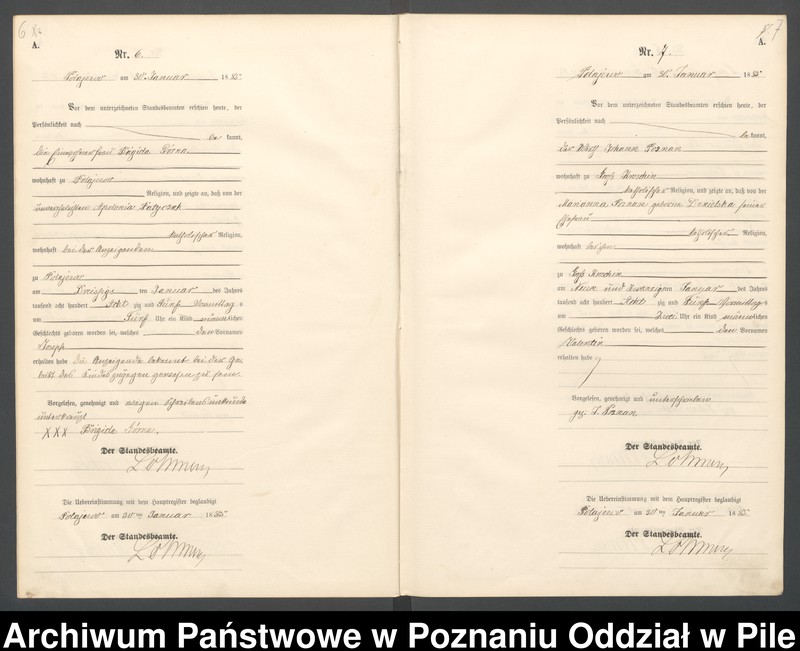 6
A.
Nr. 6.
Polajewo am 30. Januar 1885
Vor dem unterzeichneten Standesbeamten erschien heute, der
Persönlichkeit nach
be kannt,
Brigida Górna
wohnhaft zu Polajewo
Religion, und zeigte an, daß von der
unverehelichten Apolonia
katholischer Religion,
wohnhaft bei der Anzeigenden
zu Polajewo
am Dreißigsten Januar des Jahres
tausend acht hundert Acht zig und Fünf Vormittag s
um Fünf Uhr ein Kind männlichen
Geschlechts geboren worden sei, welches den Vornamen
Joseph
erhalten habe Die Anzeigende bekannt bei der Ge
burt des Kindes zugegen gewesen zu sein.
Vorgelesen, genehmigt und wegen Schreibensunkunde
unterkreuzt
XXX Brigida Górna.
Der Standesbeamte.
Die Uebereinstimmung mit dem Hauptregister beglaubigt
Polajewo am 30 ten Januar 1885
Der Standesbeamte.
7
A.
Nr. 7.
Polajewo am 30. Januar 1885
Vor dem unterzeichneten Standesbeamten erschien heute, der
Persönlichkeit nach
be kannt,
der Johann Poznan
wohnhaft zu Groß
katholischer Religion, und zeigte an, daß von der
Marianna Poznan geborene seiner
Ehefrau
katholischer Religion,
wohnhaft bei ihm
zu Groß
am Neun und zwanzigsten Januar des Jahres
tausend acht hundert Acht zig und Fünf Vormittag s
um Zwei Uhr ein Kind männlichen
Geschlechts geboren worden sei, welches den Vornamen
Valentin
erhalten habe
Vorgelesen, genehmigt und unterschrieben
gez. J. Poznan
Der Standesbeamte.
Die Uebereinstimmung mit dem Hauptregister beglaubigt
Polajewo am 30 ten Januar 1885
Der Standesbeamte.
Archiwum Państwowe w Poznaniu Oddział w Pile